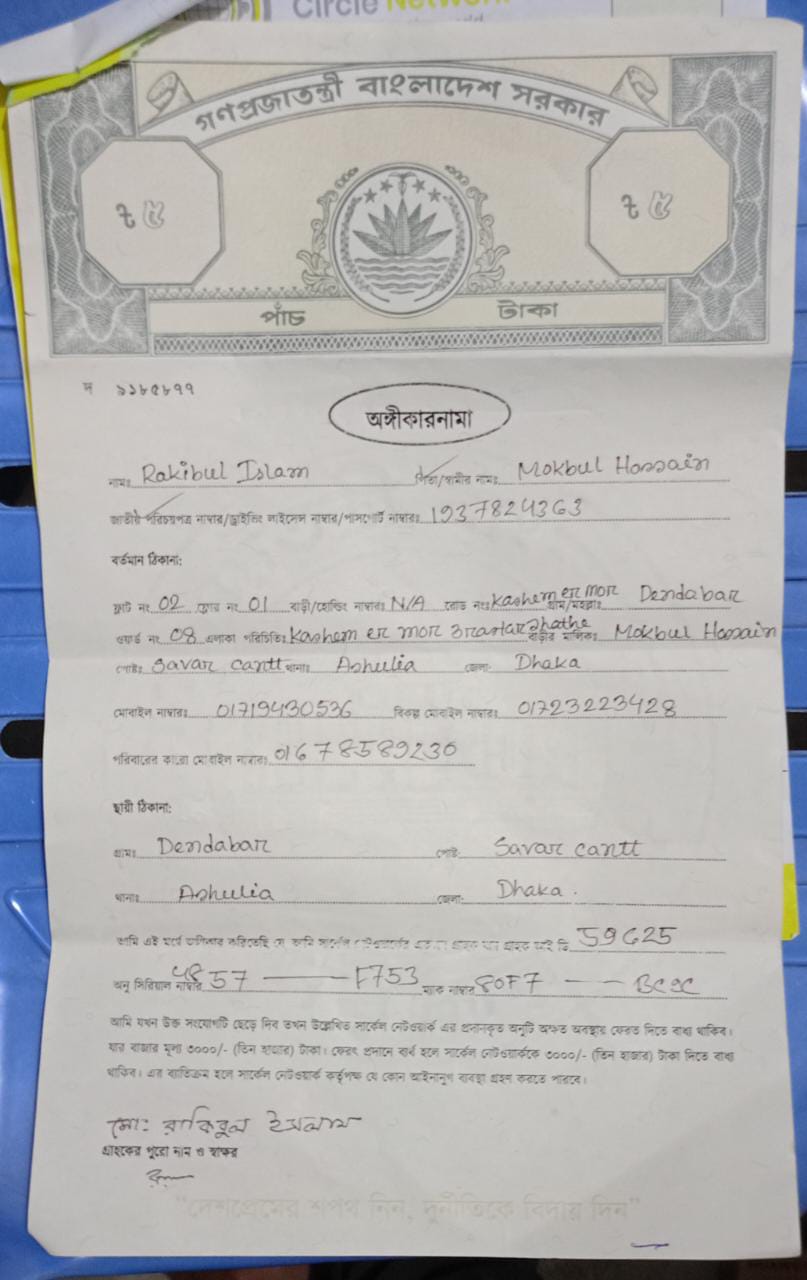 Circle Network
গণপ্রজাতন্ত্রী বাংলাদেশ সরকার
৳ ৫ ৳ ৫
পাঁচ টাকা
দ ৯১৮৫৮৭৭
অঙ্গীকারনামা
নামঃ Rakibul Islam পিতা/স্বামীর নামঃ Mokbul Hossain
জাতীয় পরিচয়পত্র নাম্বার/ড্রাইভিং লাইসেন্স নাম্বার/পাসপোর্ট নাম্বারঃ 1937824363
বর্তমান ঠিকানা:
ফ্লাট নং 02 ফ্লোর নং 01 বাড়ী/হোল্ডিং নাম্বারঃ N/A রোড নংঃ Kashem er mor গ্রাম/মহল্লাঃ Dendabar
ওয়ার্ড নং 08 এলাকা পরিচিতিঃ Kashem er mor বাড়ীর মালিকঃ Mokbul Hossain
পোষ্টঃ Savar cantt থানাঃ Ashulia জেলা: Dhaka
মোবাইল নাম্বারঃ 01719430536 বিকল্প মোবাইল নাম্বারঃ 01723223428
পরিবারের কারো মোবাইল নাম্বারঃ 01678589230
স্থায়ী ঠিকানা:
গ্রামঃ Dendabar পোষ্ট: Savar cantt
থানাঃ Ashulia জেলা: Dhaka.
আমি এই মর্মে অঙ্গিকার করিতেছি যে আমি সার্কেল নেটওয়ার্কের একজন গ্রাহক যার গ্রাহক আই ডি 59625
অনু সিরিয়াল নাম্বার 4857 —— F753 ম্যাক নাম্বার 80F7 ——
আমি যখন উক্ত সংযোগটি ছেড়ে দিব তখন উল্লেখিত সার্কেল নেটওয়ার্ক এর প্রদানকৃত অনুটি অক্ষত অবস্থায় ফেরত দিতে বাধ্য থাকিব।
যার বাজার মূল্য ৩০০০/- (তিন হাজার) টাকা। ফেরৎ প্রদানে ব্যর্থ হলে সার্কেল নেটওয়ার্ককে ৩০০০/- (তিন হাজার) টাকা দিতে বাধ্য
থাকিব। এর ব্যতিক্রম হলে সার্কেল নেটওয়ার্ক কর্তৃপক্ষ যে কোন আইনানুগ ব্যবস্থা গ্রহণ করতে পারবে।
মো: রাকিবুল ইসলাম
গ্রাহকের পুরো নাম ও স্বাক্ষর
"দেশপ্রেমের শপথ নিন, দুর্নীতিকে বিদায় দিন"